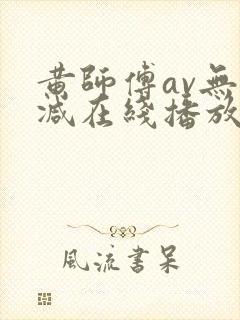 黄師傅av無
減在綫播放
風流書呆